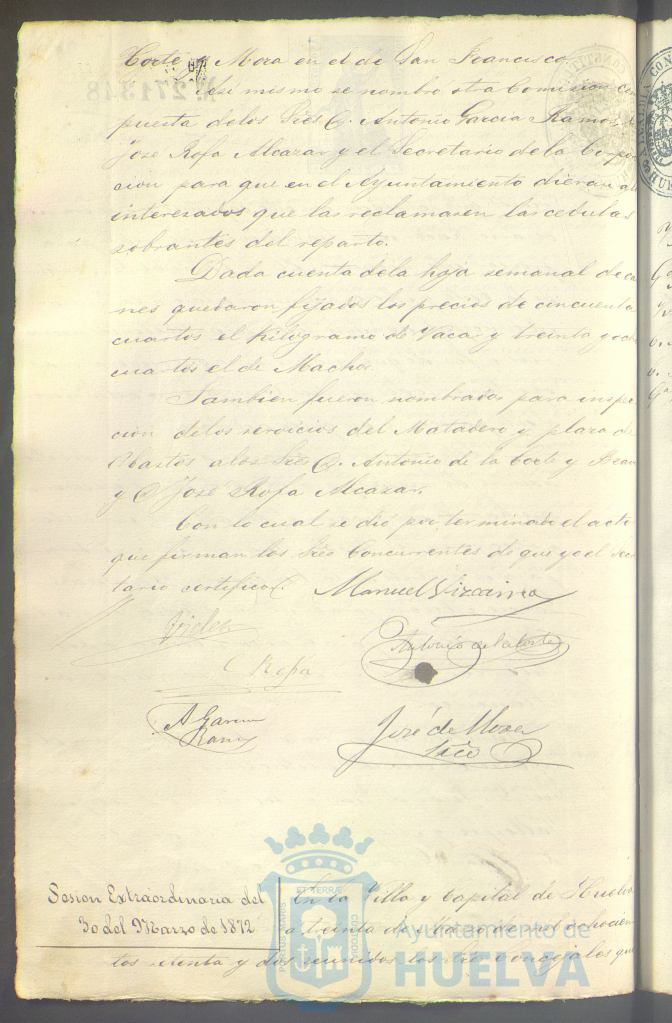 Corte y Mora en el de San Francisco.
Asi mismo se nombro otra Comision com
puesta de los Sres D. Antonio Garcia Ramos, D.
Jose Rofa Alcazar y el Secretario de la Corpo
cion para que en el Ayuntamiento dieran a
interesados que las reclamasen las cedulas
sobrantes del reparto.
Dada cuenta de la hoja semanal de ca
nes quedaron fijados los precios de cincuenta
cuartos el Kilogramo de Vaca y treinta y och
cuartos el de Macho.
Tambien fueron nombrados para inspe
cion de los servicios del Matadero y plaza de
Abastos a los Sres D. Antonio de la Corte y
y D. José Rofa Alcazar.
Con lo cual se dió por terminado el acto
que firman los Sres Concurrentes de que yo el secre
tario certifico.
Manuel Vizcaino
Antonio de la Corte
Rofa
A Garcia
Ramos
José de Mora
Srio
Sesion Extraordinaria del
30 del Marzo de 1872
En la Villa y Capital de Huelva
a treinta de Marzo de mil ochocien
tos setenta y dos reunidos los Sres Concejales que
Nº 271348
PORTUS MARIS
ET TERRÆ
CUSTODIA
Ayuntamiento de
HUELVA